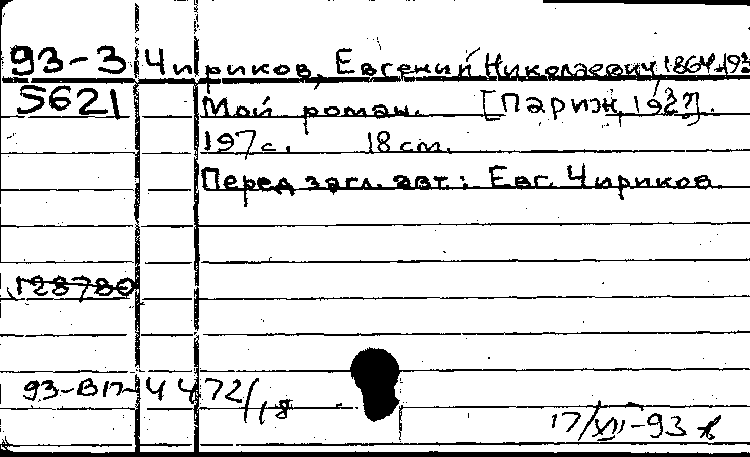 93-3 Чириков, Евгений Николаевич, 1864-193
5621 Мой роман. [Париж, 192?].
197 с. 18 см.
Перед загл. авт.: Евг. Чириков.
128780
93-ВП-4472/18
17/XII-93